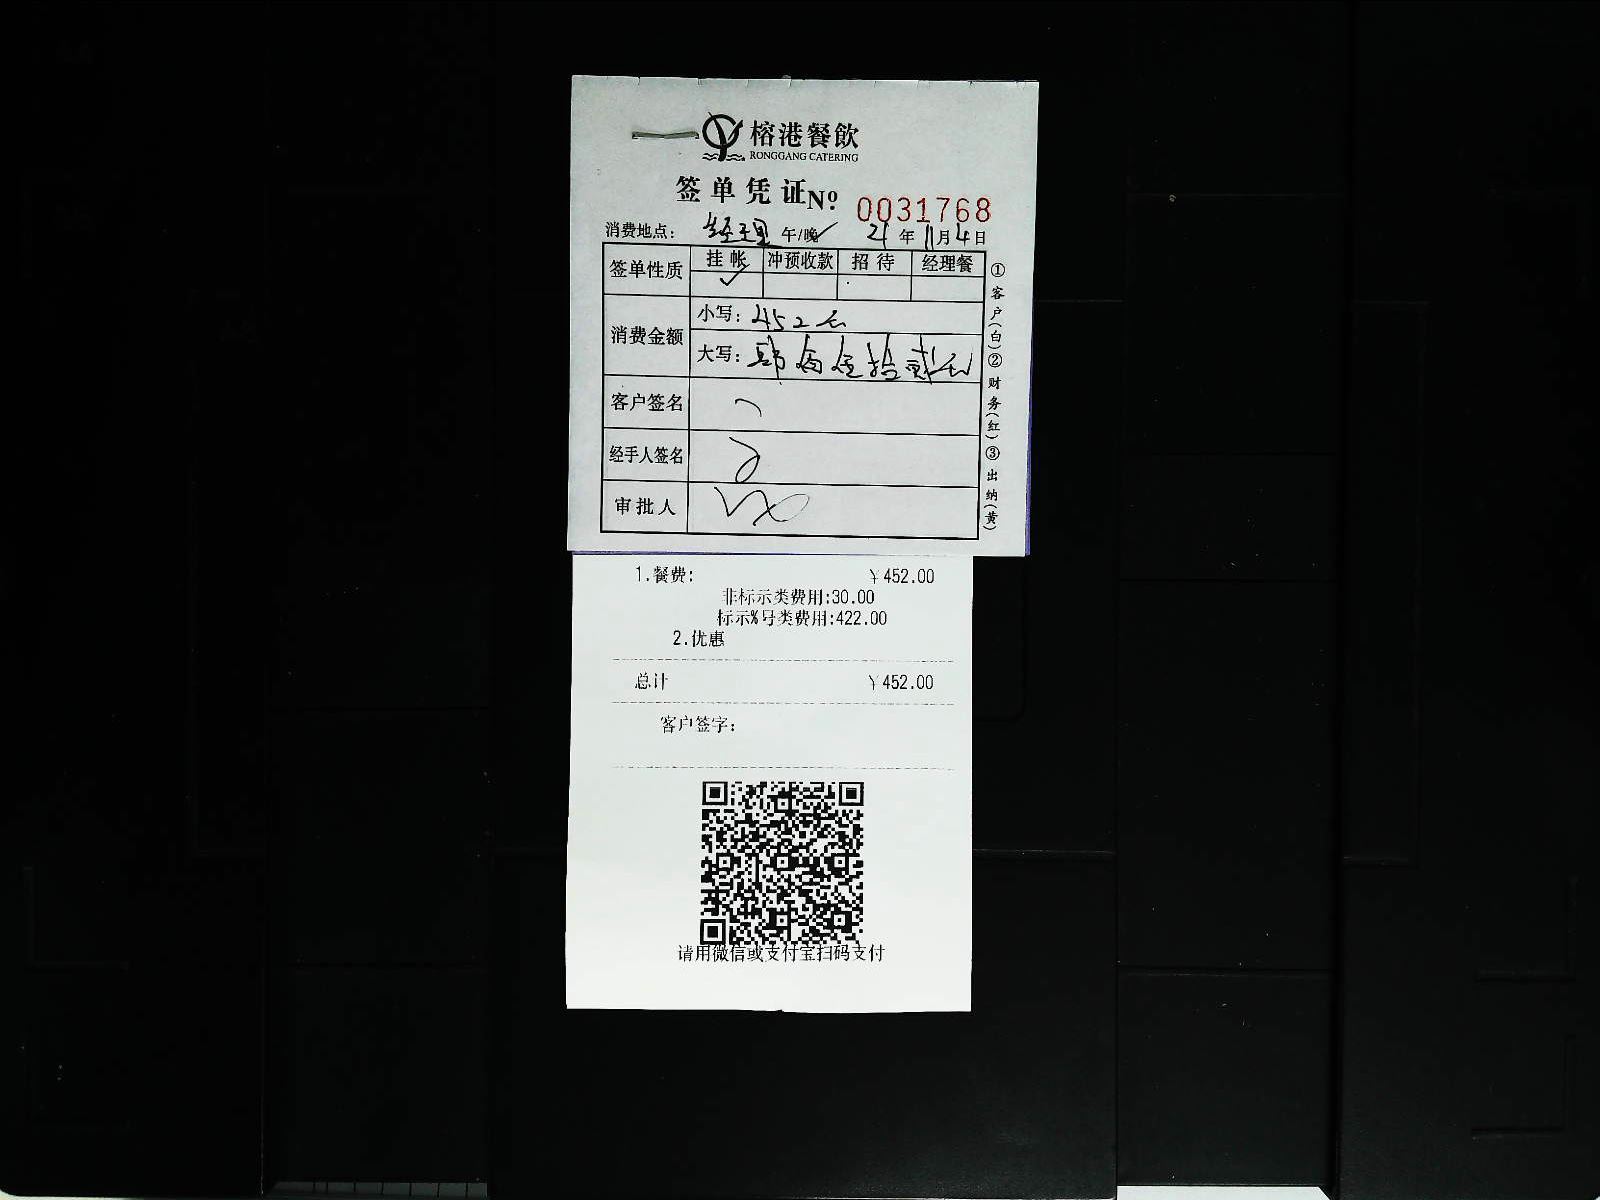 榕港餐飲
RONGGANG CATERING
签单凭证Nº 0031768
消费地点：经理 午/晚✓ 21年11月4日
签单性质 挂帐 冲预收款 招待 经理餐
✓
消费金额 小写：452元
大写：肆佰伍拾贰元
客户签名
经手人签名
审批人
①客户(白)②财务(红)③出纳(黄)
1.餐费: ¥452.00
非标示类费用:30.00
标示%号类费用:422.00
2.优惠
总计 ¥452.00
客户签字:
请用微信或支付宝扫码支付